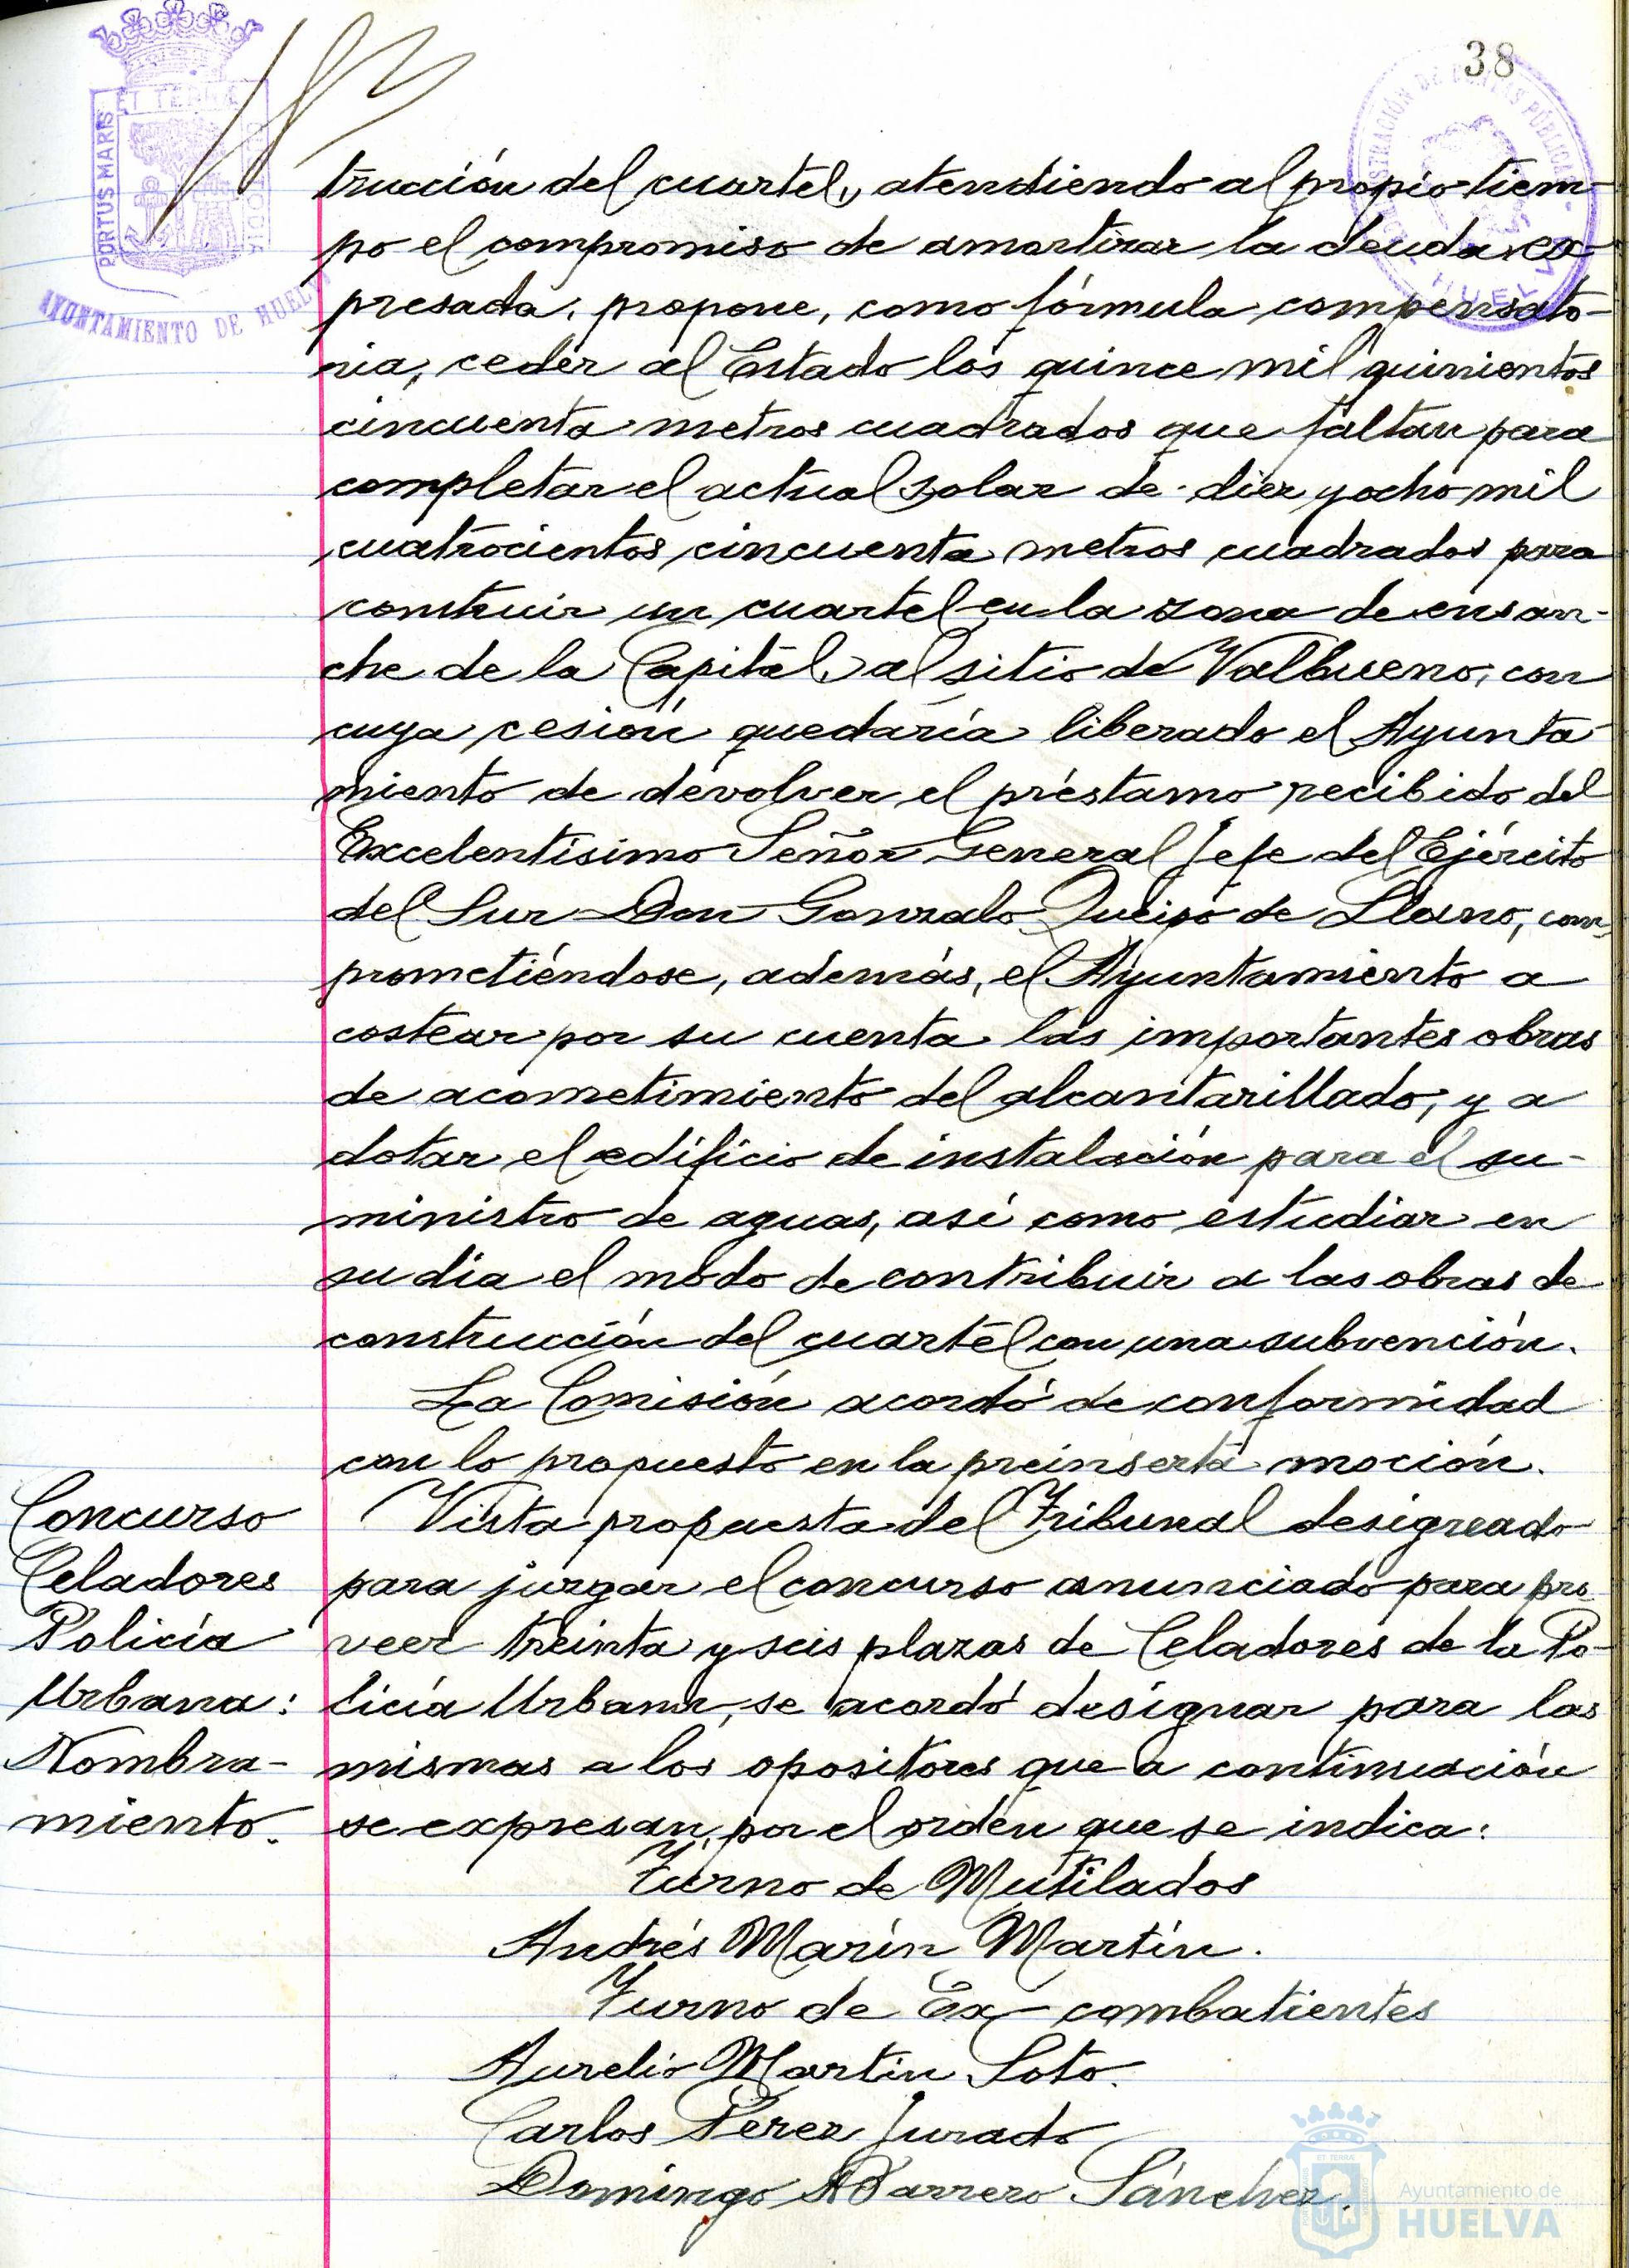 38
PORTUS MARIS
ET TERRÆ
CUSTODIA
AYUNTAMIENTO DE HUELVA
trucción del cuartel, atendiendo al propio tiem-
po el compromiso de amortizar la deuda ex-
presada, propone, como fórmula compensato-
ria, ceder al Estado los quince mil quinientos
cincuenta metros cuadrados que faltan para
completar el actual solar de diez y ocho mil
cuatrocientos cincuenta metros cuadrados para
construir un cuartel en la zona de ensan-
che de la Capital, al sitio de Valbueno, con
cuya cesión quedaría liberado el Ayunta-
miento de devolver el préstamo recibido del
Excelentísimo Señor General Jefe del Ejército
del Sur Don Gonzalo Queipo de Llano, com-
prometiéndose, además, el Ayuntamiento a
costear por su cuenta las importantes obras
de acometimiento del alcantarillado, y a
dotar el edificio de instalación para el su-
ministro de aguas, así como estudiar en
su dia el modo de contribuir a las obras de
construcción del cuartel con una subvención.
La Comisión acordó de conformidad
con lo propuesto en la preinserta moción.
Concurso
Celadores
Policía
Urbana:
Nombra-
miento.
Vista propuesta del Tribunal designado
para juzgar el concurso anunciado para pro-
veer treinta y seis plazas de Celadores de la Po-
licía Urbana, se acordó designar para las
mismas a los opositores que a continuación
se expresan, por el orden que se indica:
Turno de Mutilados
Andrés Marín Martín.
Turno de Ex-combatientes
Aurelio Martin Soto.
Carlos Perez Jurado
Domingo Barrero Sánchez.
Ayuntamiento de
HUELVA